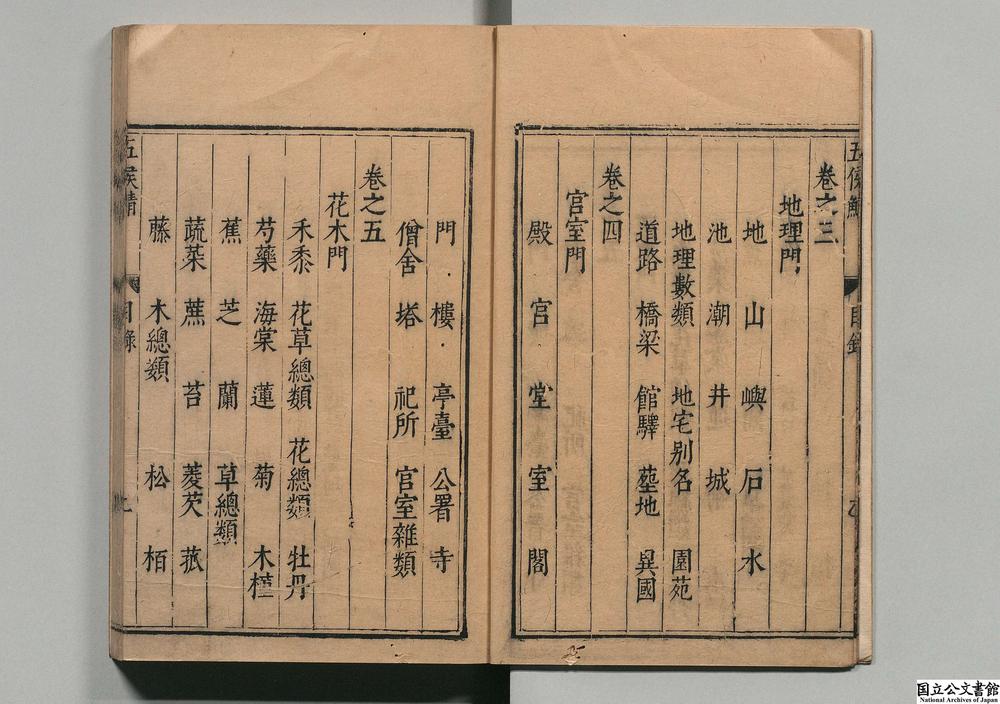 五侯鯖
目錄
卷之三
地理門
地 山 嶼 石 水
池 潮 井 城
地理數類 地宅别名 園苑
道路 橋梁 館驛 墓地 異國
卷之四
官室門
殿 宫 堂 室 閣
門 樓 亭臺 公署 寺
僧舍 塔 祀所 官室雜類
卷之五
花木門
禾黍 花草總類 花總類 牡丹
芍藥 海棠 蓮 菊 木槿
蕉 芝 蘭 草總類
蔬菜 蕉 苔 菱芡 菰
藤 木總類 松 栢
五侯鯖
目錄
国立公文書館
National Archives of Japan